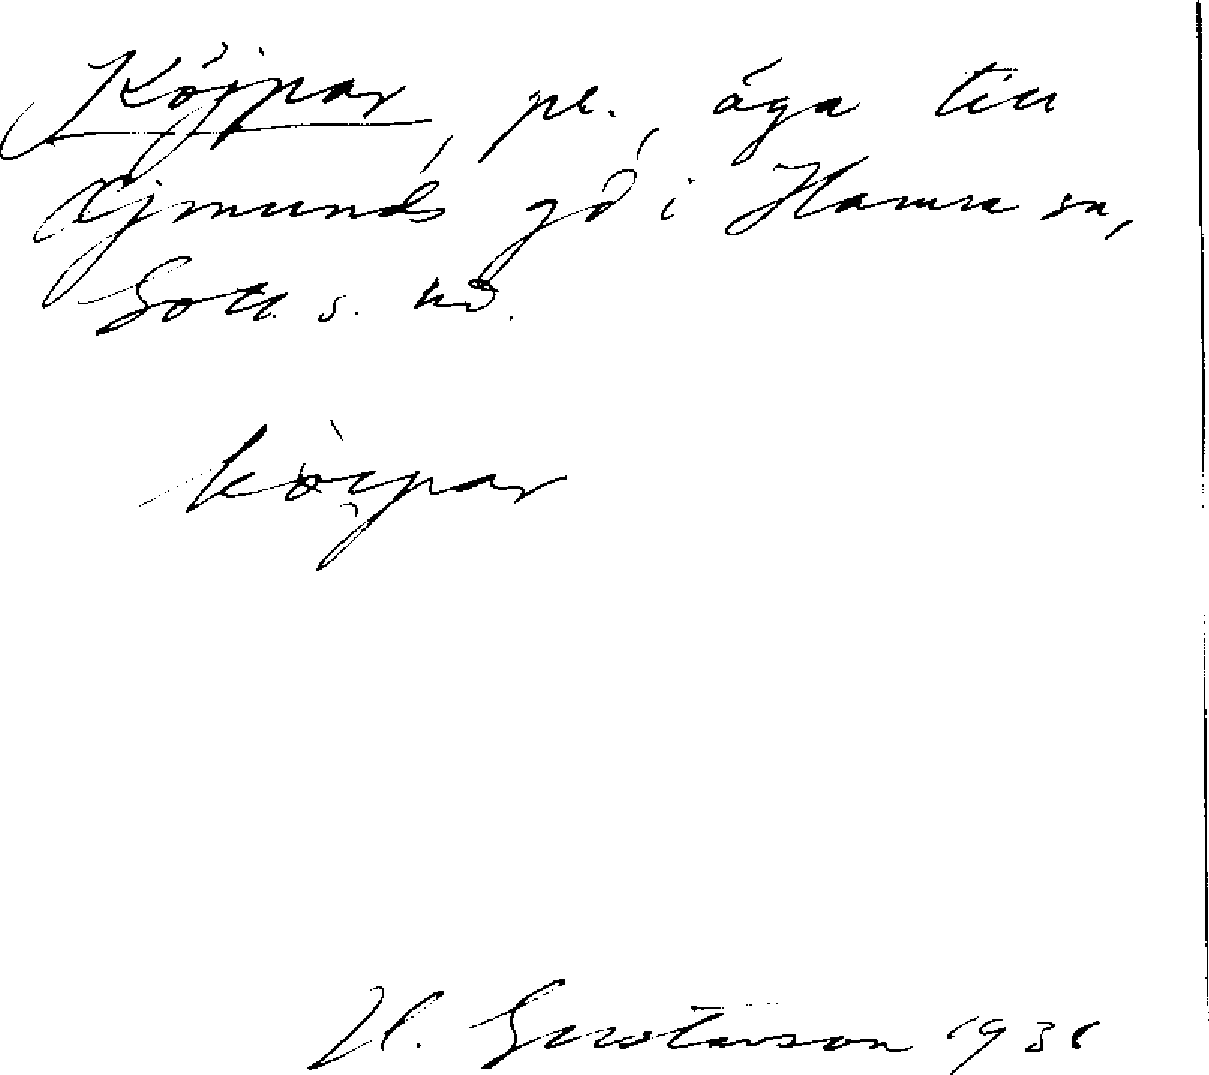 Kójpar, pl., äga till
Ajmunds gd i Hamra sn,
Gotl. s. hd.
kòi̯par
H. Gustavson 1931